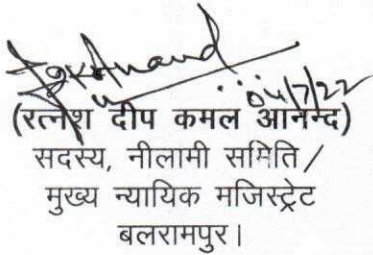 04/7/22
(रत्नेश दीप कमल आनन्द)
सदस्य, नीलामी समिति /
मुख्य न्यायिक मजिस्ट्रेट
बलरामपुर।